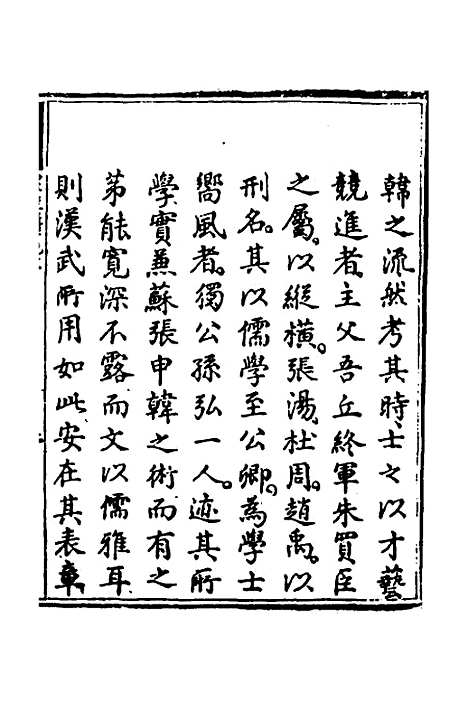 韓之流然考其時士之以才藝
競進者主父吾丘終軍朱買臣
之屬。以縱橫。張湯。杜周。趙禹。以
刑名。其以儒學至公卿。為學士
嚮風者。獨公孫弘一人。迹其所
學實蒹蘇張申韓之術而有之
苐能寬深不露而文以儒雅耳
則漢武所用如此安在其表章